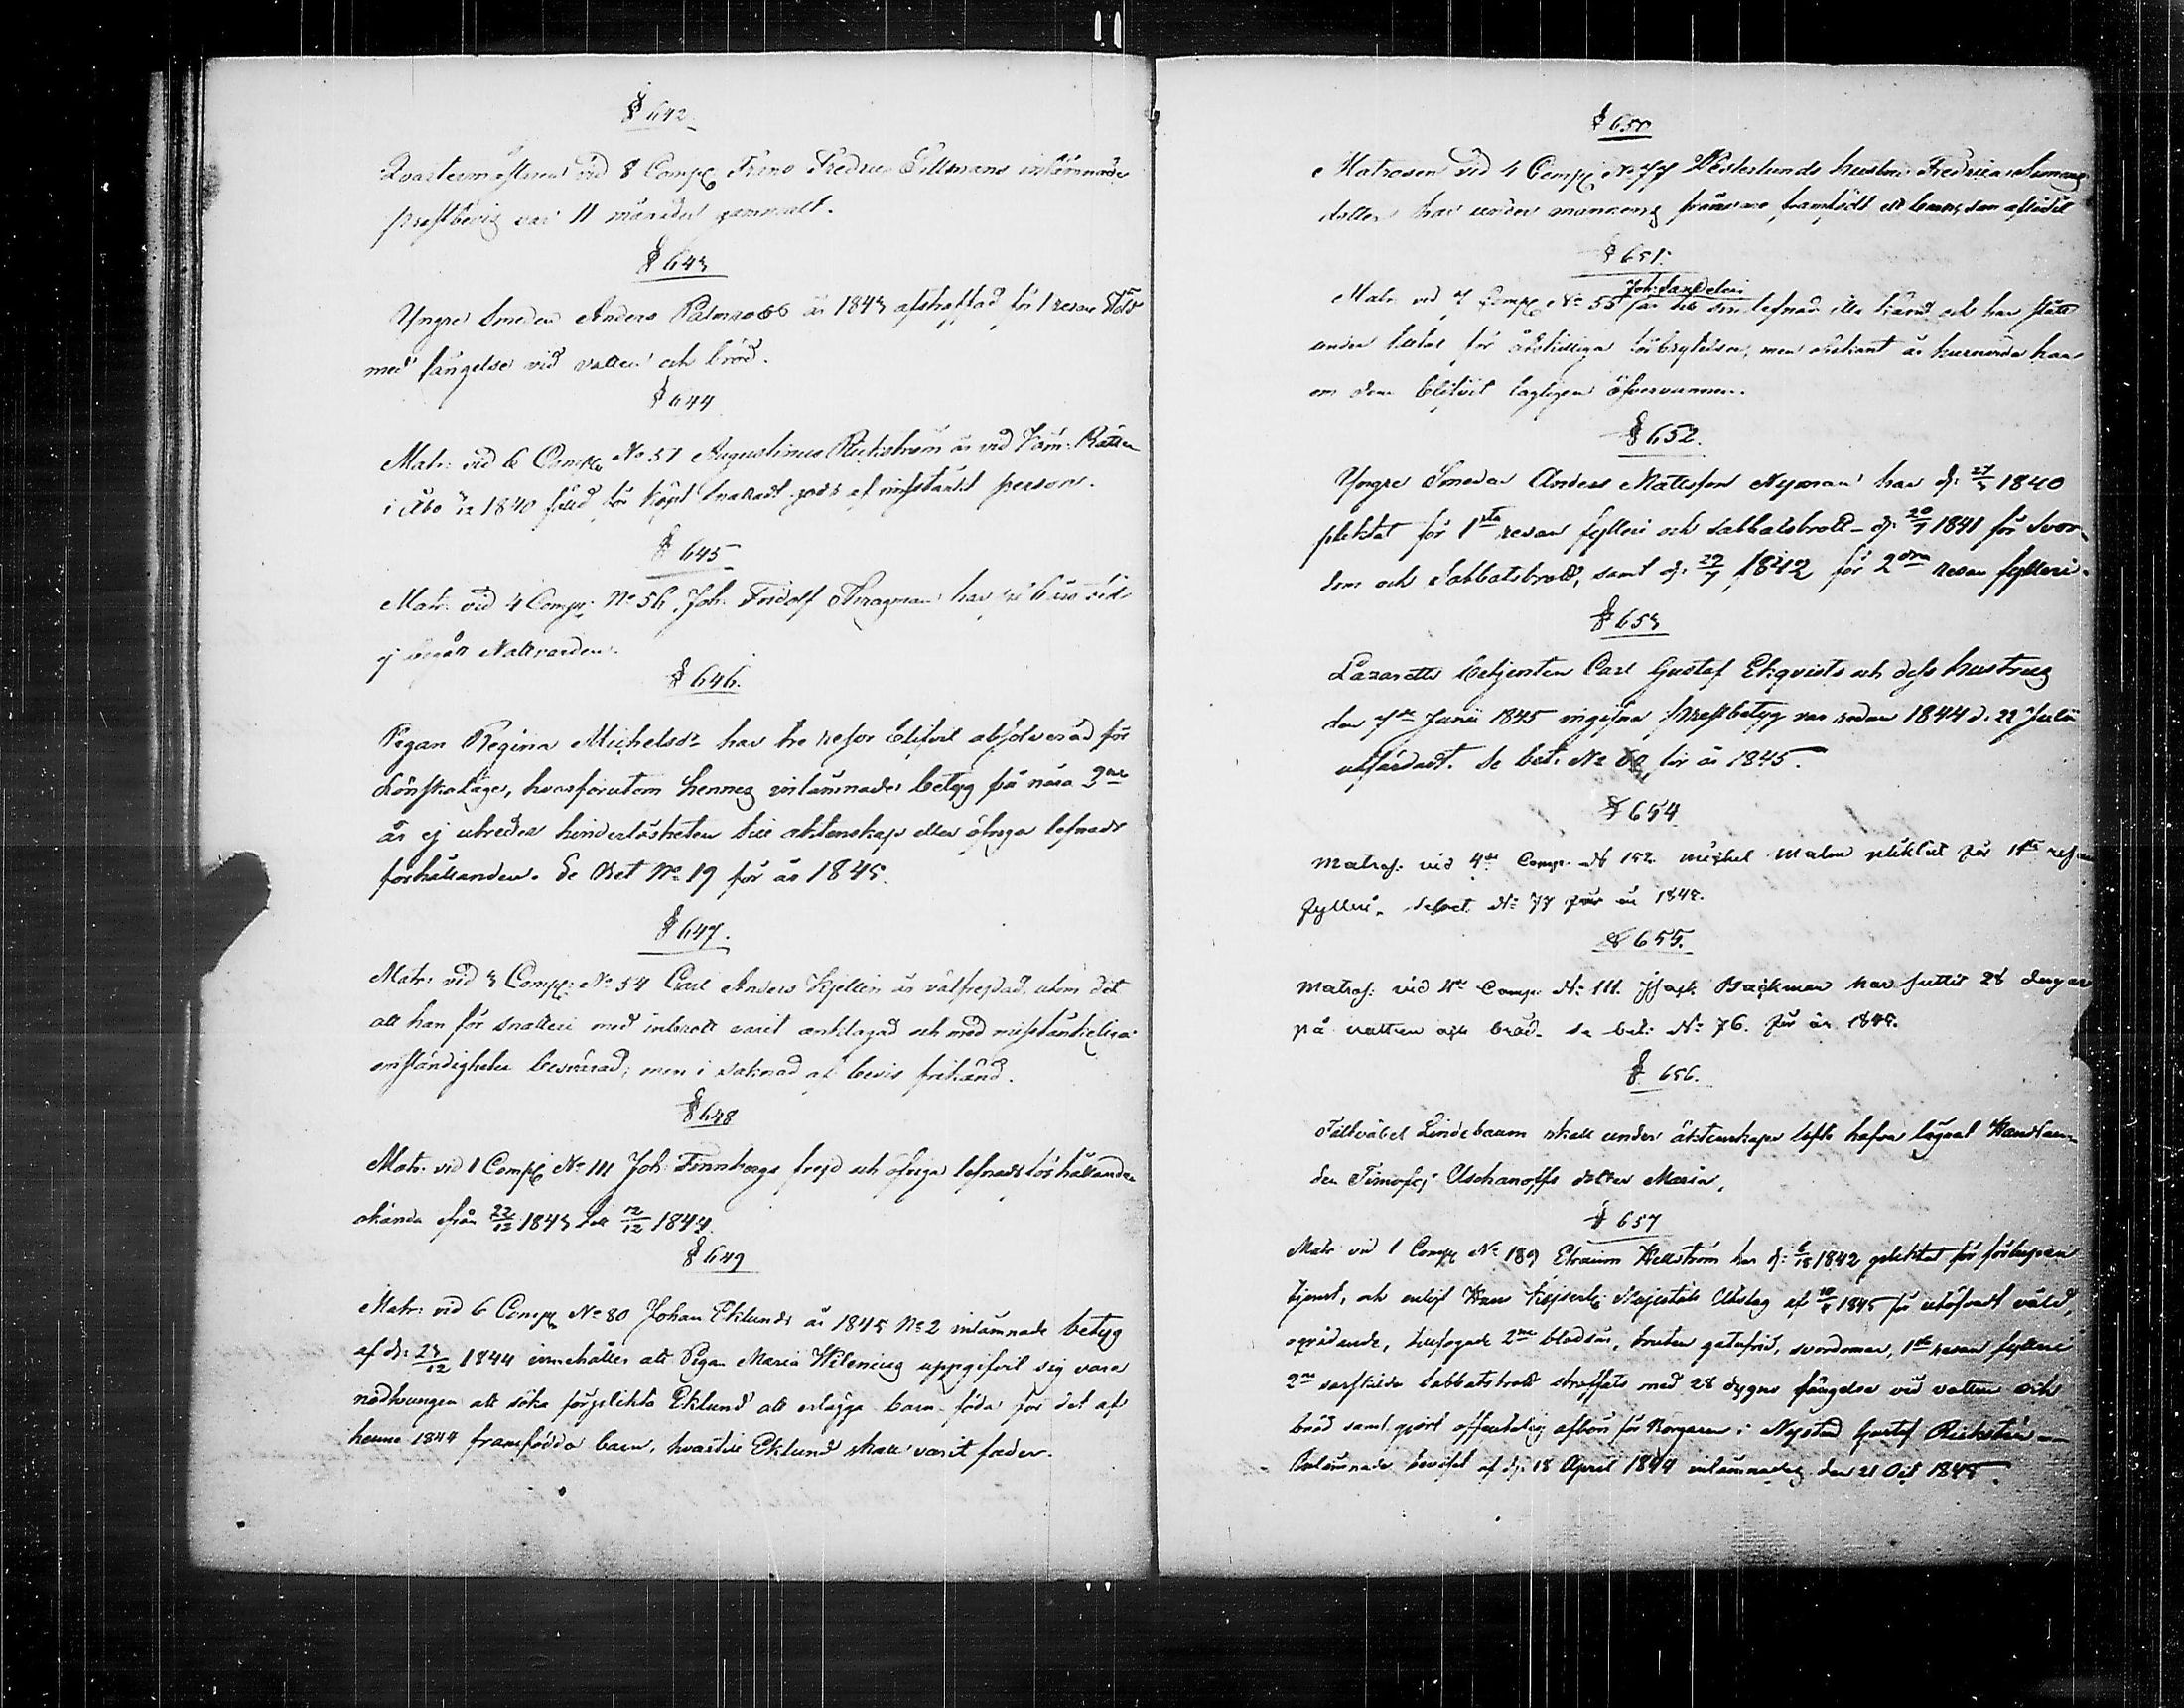 § 642.
Qvartermästaren vid 8 Comp: Frans Fredric Tillmans inlämnade
prestbevis var 11 månader gammalt.
§ 643
Yngre Smeden Anders Palmroos är 1843 afstraffad för 1 resan Stöld
med fängelse vid vatten och bröd.
§ 644
Matr: vid 6 Comp: No 57 Augustinus Rickström är vid Käm: Rätten
i Åbo 1840 fäld för köpt snattadt gods af misstänkt person.
§ 645
Matr: vid 4 Comp: No 56. Joh: Fridolf Thragman har
ej begått Nattvarden.
§ 646.
Pigan Regina Michelsdr har tre resor blifvit absolverad för
Lönskaläge, hvarförutom hennes inlämnade betyg på nära 2ne
år ej utreder hinderlösheten till äktenskap eller öfriga lefnads
förhållanden. Se Bet No 19 för år 1845.
§ 647.
Matr: vid 3 Comp: No 54 Carl Anders Kjellin är välfrejdad, utom det
att han för snatteri med inbrott varit anklagad och med misstänkeliga
omständigheter besvärad; men i saknad af bevis frikänd.
§ 648
Matr: vid 1 Comp: No 111 Joh: Finnbergs frejd och öfriga lefnadsförhållanden
okända från 22/12 1843 till 12/12 1844.
§ 649
Matr: vid 6 Comp: No 80 Johan Eklunds år 1845 No 2 inlämnade betyg
af d: 23/12 1844 innehåller att Pigan Maria Wilening uppgifvit sig vara
nödtvungen att söka förplikta Eklund att erlägga barnaföda för det af
henne 1844 framfödda barn, hvartill Eklund skall varit fader.
§ 650
Matrosen vid 4 Comp: No 77 Westerlunds hustru Fredrica
dotter har under mannens frånvaro framfödt ett barn, som aflidit
§ 651.
Joh: Sandelin
Matr: vid 7 Comp: No 55 är till sin lefnad illa känd och har stått
under tilltal för åtskilliga förbrytelser, men obekant är huruvida han
om dem blifvit lagligen öfvervunnen.
§ 652.
Yngre Smeden Anders Mattsson Nyman har d: 1840
pliktat för 1sta resan fylleri och sabbatsbrott – d: 1841 för Svor-
dom och Sabbatsbrott, samt d: 1842 för 2dra resan fylleri.
§ 653
Lazaretts betjenten Carl Gustaf Ekqvists och dess hustrus
den 7de Junii 1845 ingifna prestbetyg var redan 1844 d. 22 Julii
utfärdadt. Se bet: No för år 1845.
§ 654
Matros: vid 4de Comp. No 152. Michel Malm pliktat för 1sta resan
fylleri. Se bet. No 77 för år 1845.
§ 655.
Matros: vid Comp: No 111. Isack Backman har suttit 28 dagar
på vatten och bröd. Se bet: No 76. för år 1845.
§ 656.
Fältväbel Lindebaum skall under äktenskaps löfte hafva lägrat Handlan-
den Timofej Uschanoffs dotter Maria.
§ 657
Matr vid 1 Comp No 189 Efraim Hellström har d: 1842 pliktat för försupen
tjenst, och enligt Hans Kejserl: Majestäts Utslag af 1845 för utöfvadt våld,
oqvädande, tillfogade 2ne blodsår, bruten gatufrid, svordomar, 1sta resan fylleri
2ne särskilda Sabbatsbrott straffats med 28 dygns fängelse vid vatten och
bröd samt gjort offentelig afbön för Borgaren i Nystad Gustaf
Inlämnade beviset af d: 18 April 1844 inlämnades den 21 Oct 1845.